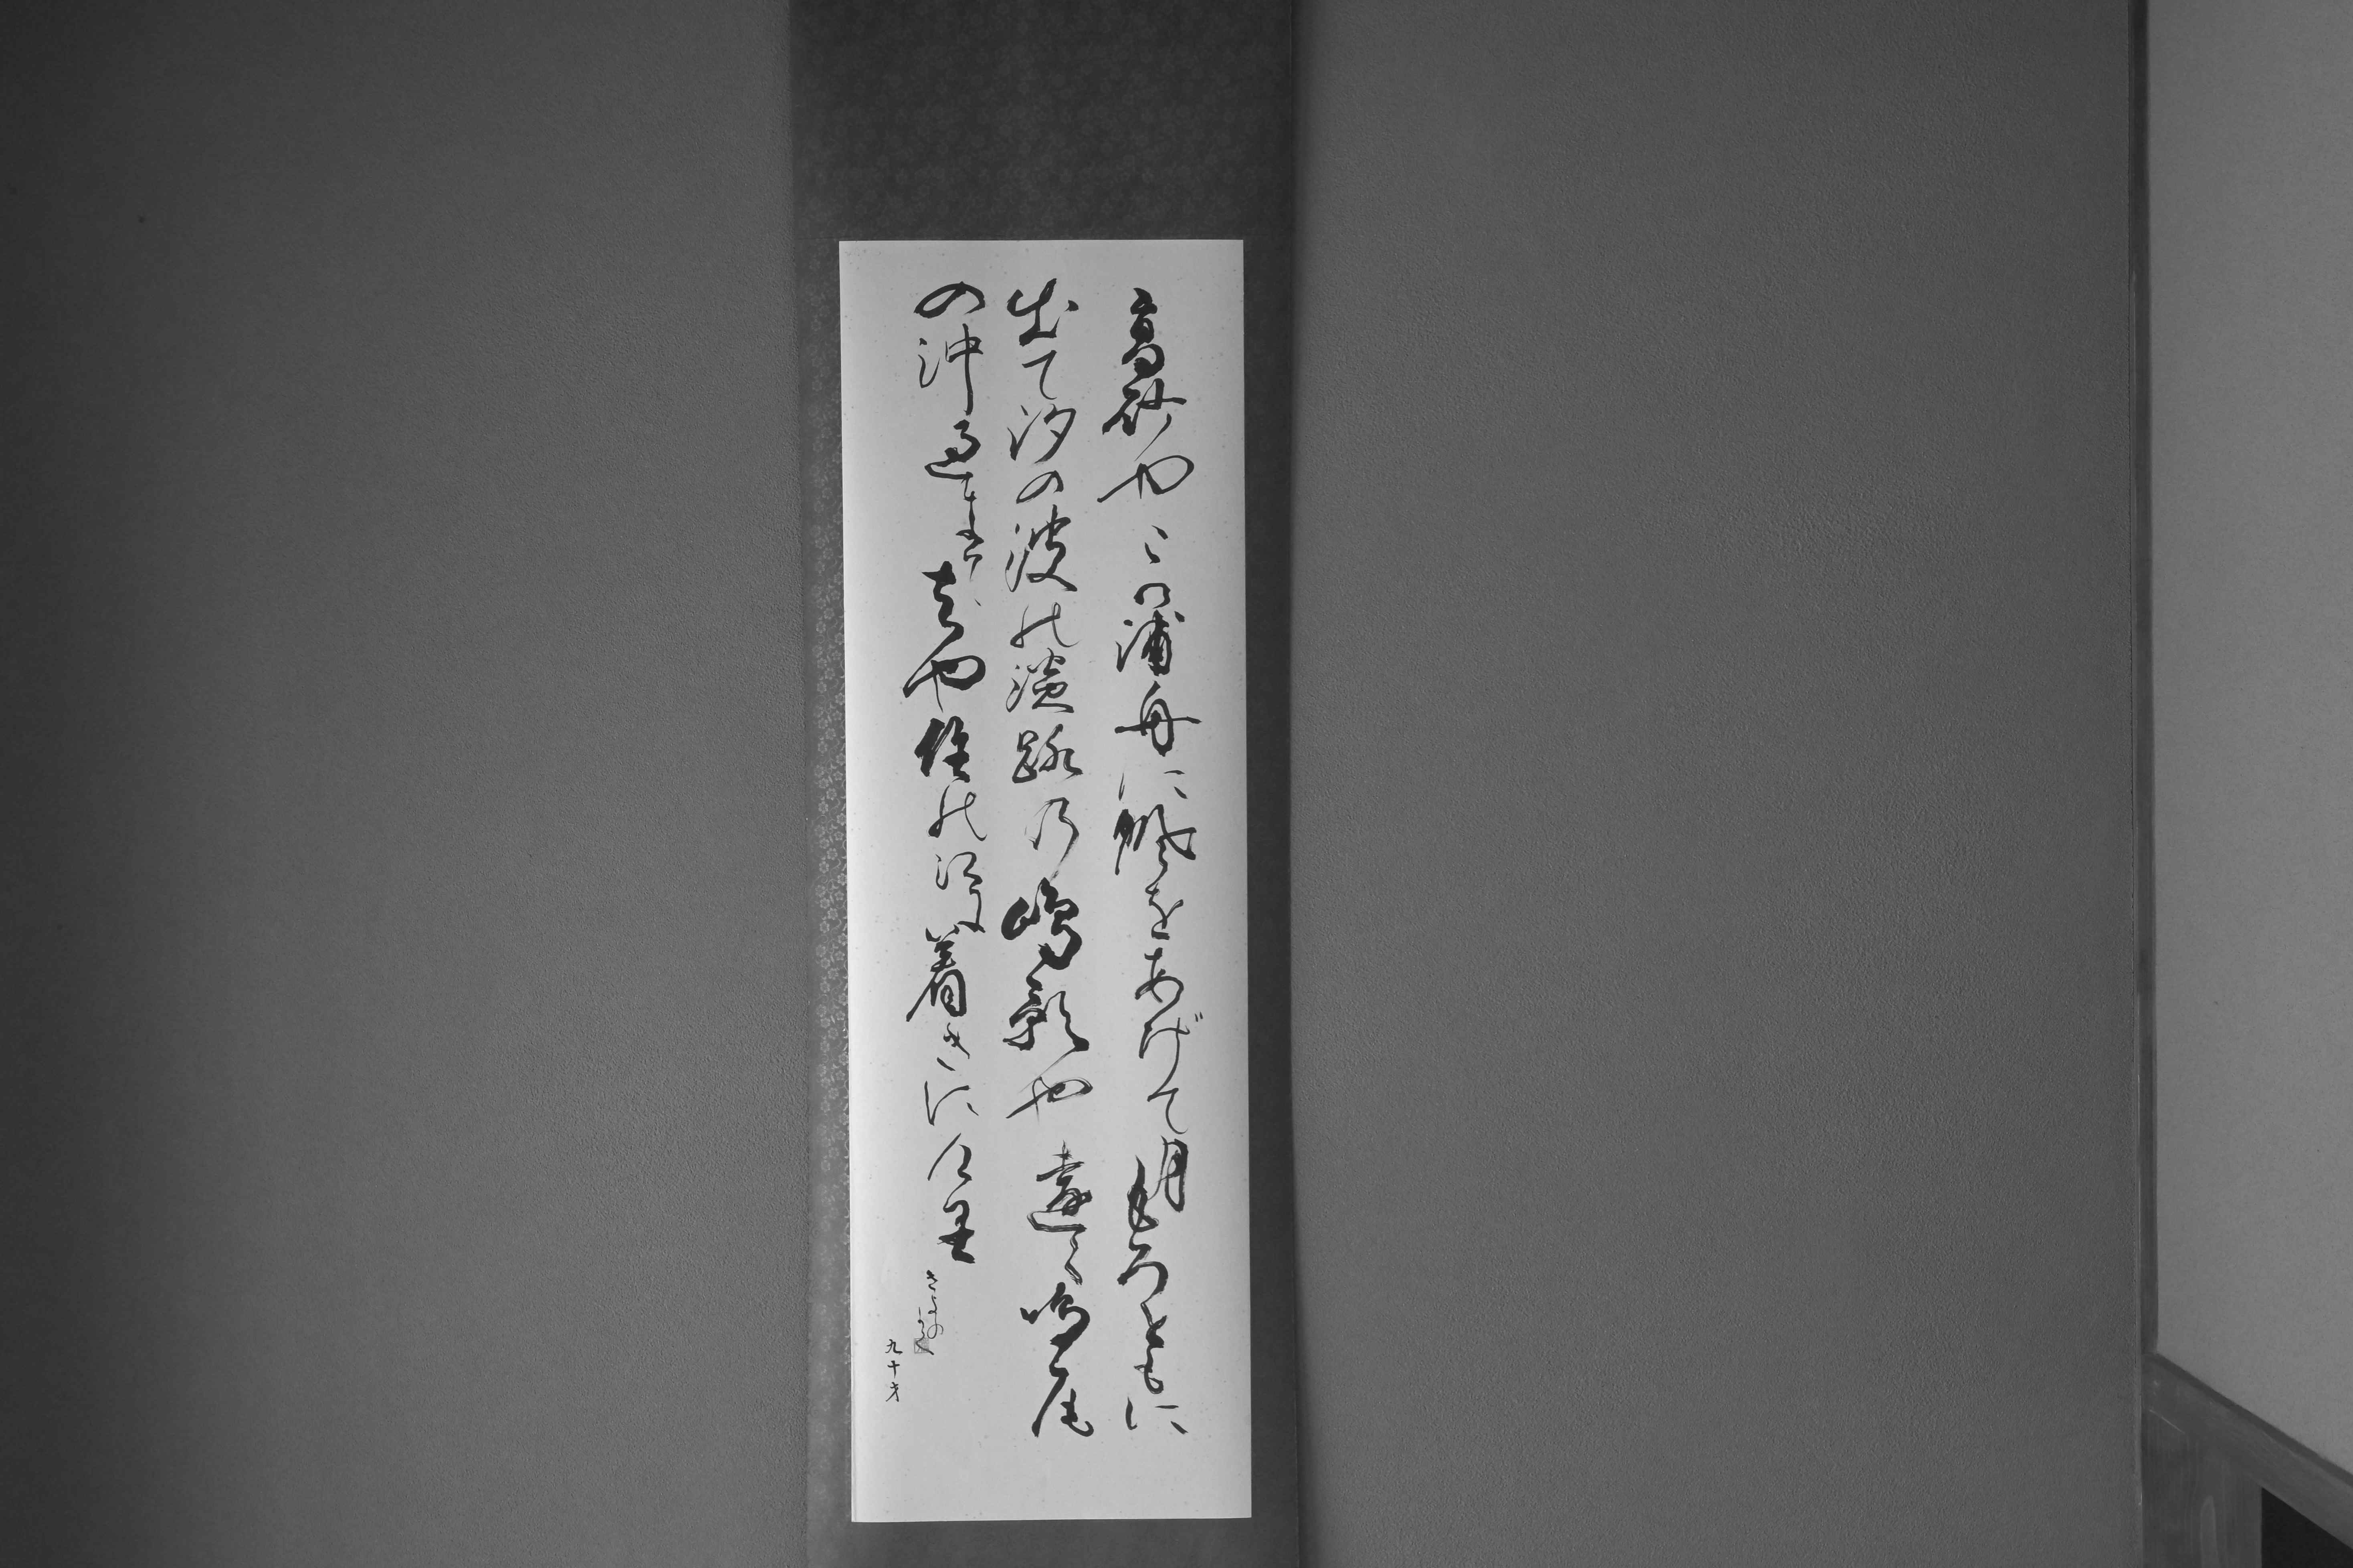 高砂やこの浦舟に帆をあげて月もろともに
出て汐の波の淡路乃嶋影や遠く鳴尾
の沖過きてはや住の江に着きにけり
九十才